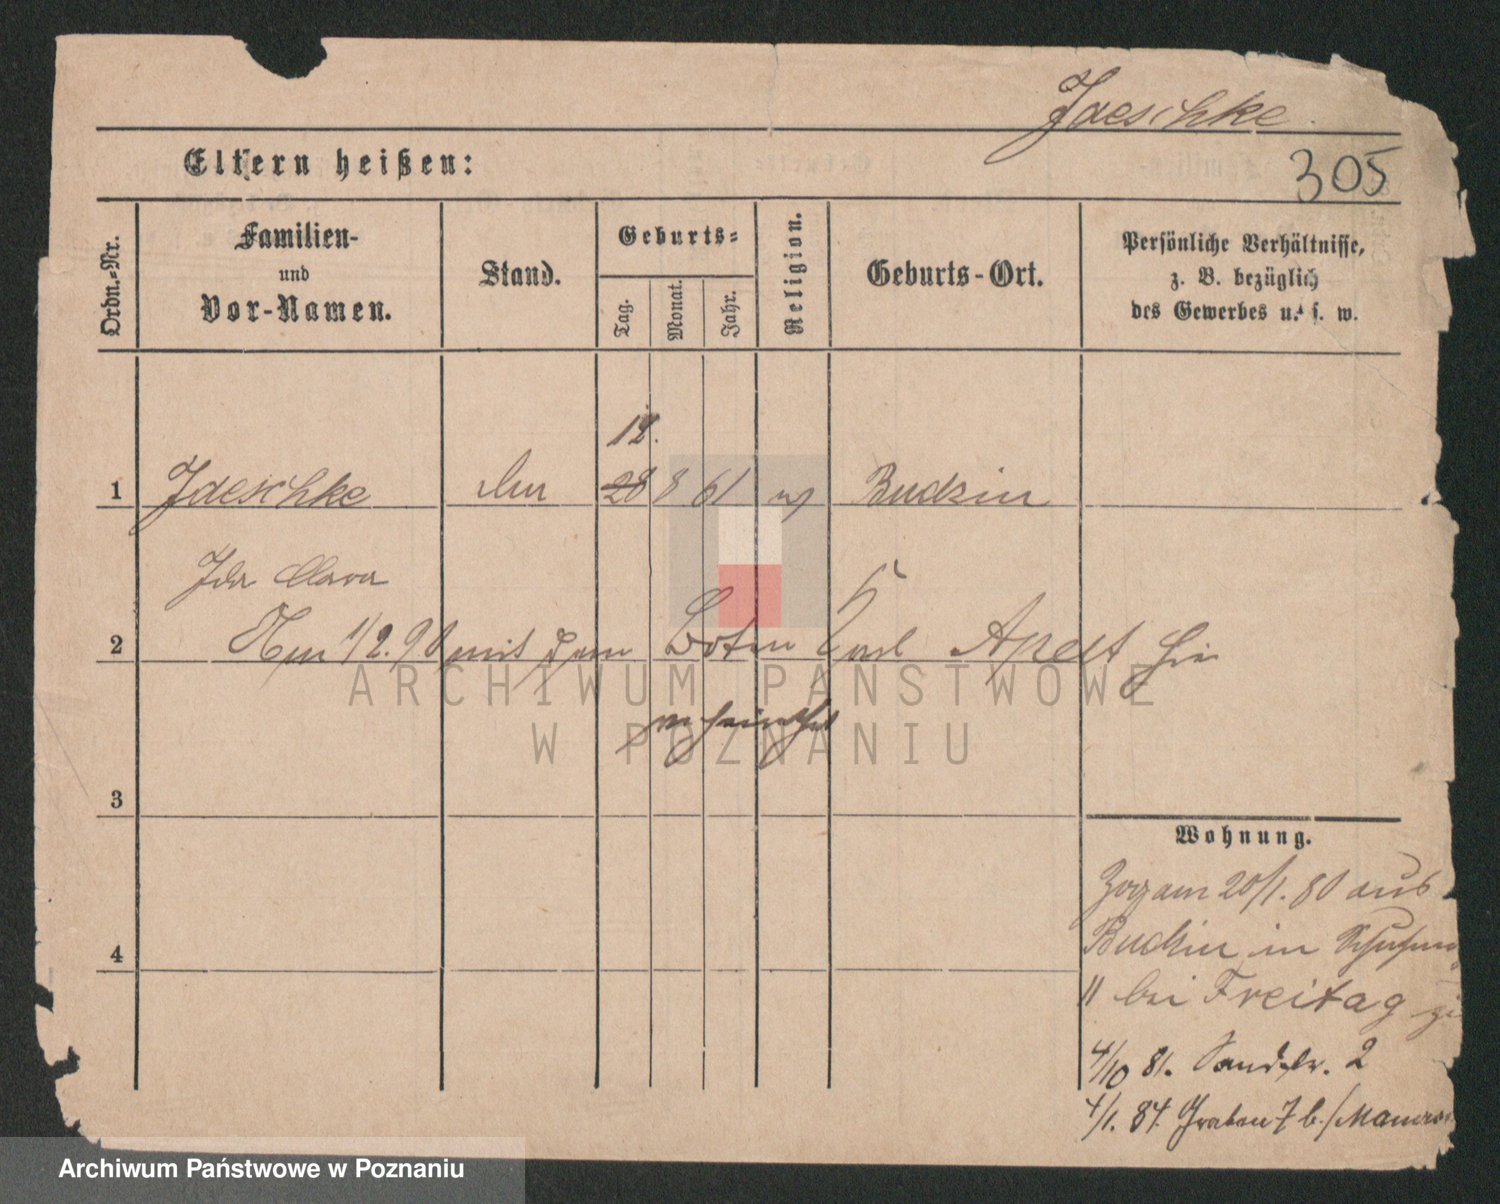 Jaeschke
305
Eltern heißen:
Ordn.-Nr.
Familien-
und
Vor-Namen.
Stand.
Geburts-
Tag.
Monat.
Jahr.
Religion.
Geburts-Ort.
Persönliche Verhältnisse,
z. B. bezüglich
des Gewerbes u. s. w.
18.
1 Jaeschke 28 8 61 Budzin
Ida Clara
2 Am 1/2.90 mit dem Boten Karl Apelt hie
verheirathet
3
4
Wohnung.
Zog am 20/1. 80 aus
Budzin in
11 bei Freitag
4/10 81. Sandstr. 2
4/1. 84. Graben 7 b./
ARCHIWUM PAŃSTWOWE
W POZNANIU
Archiwum Państwowe w Poznaniu